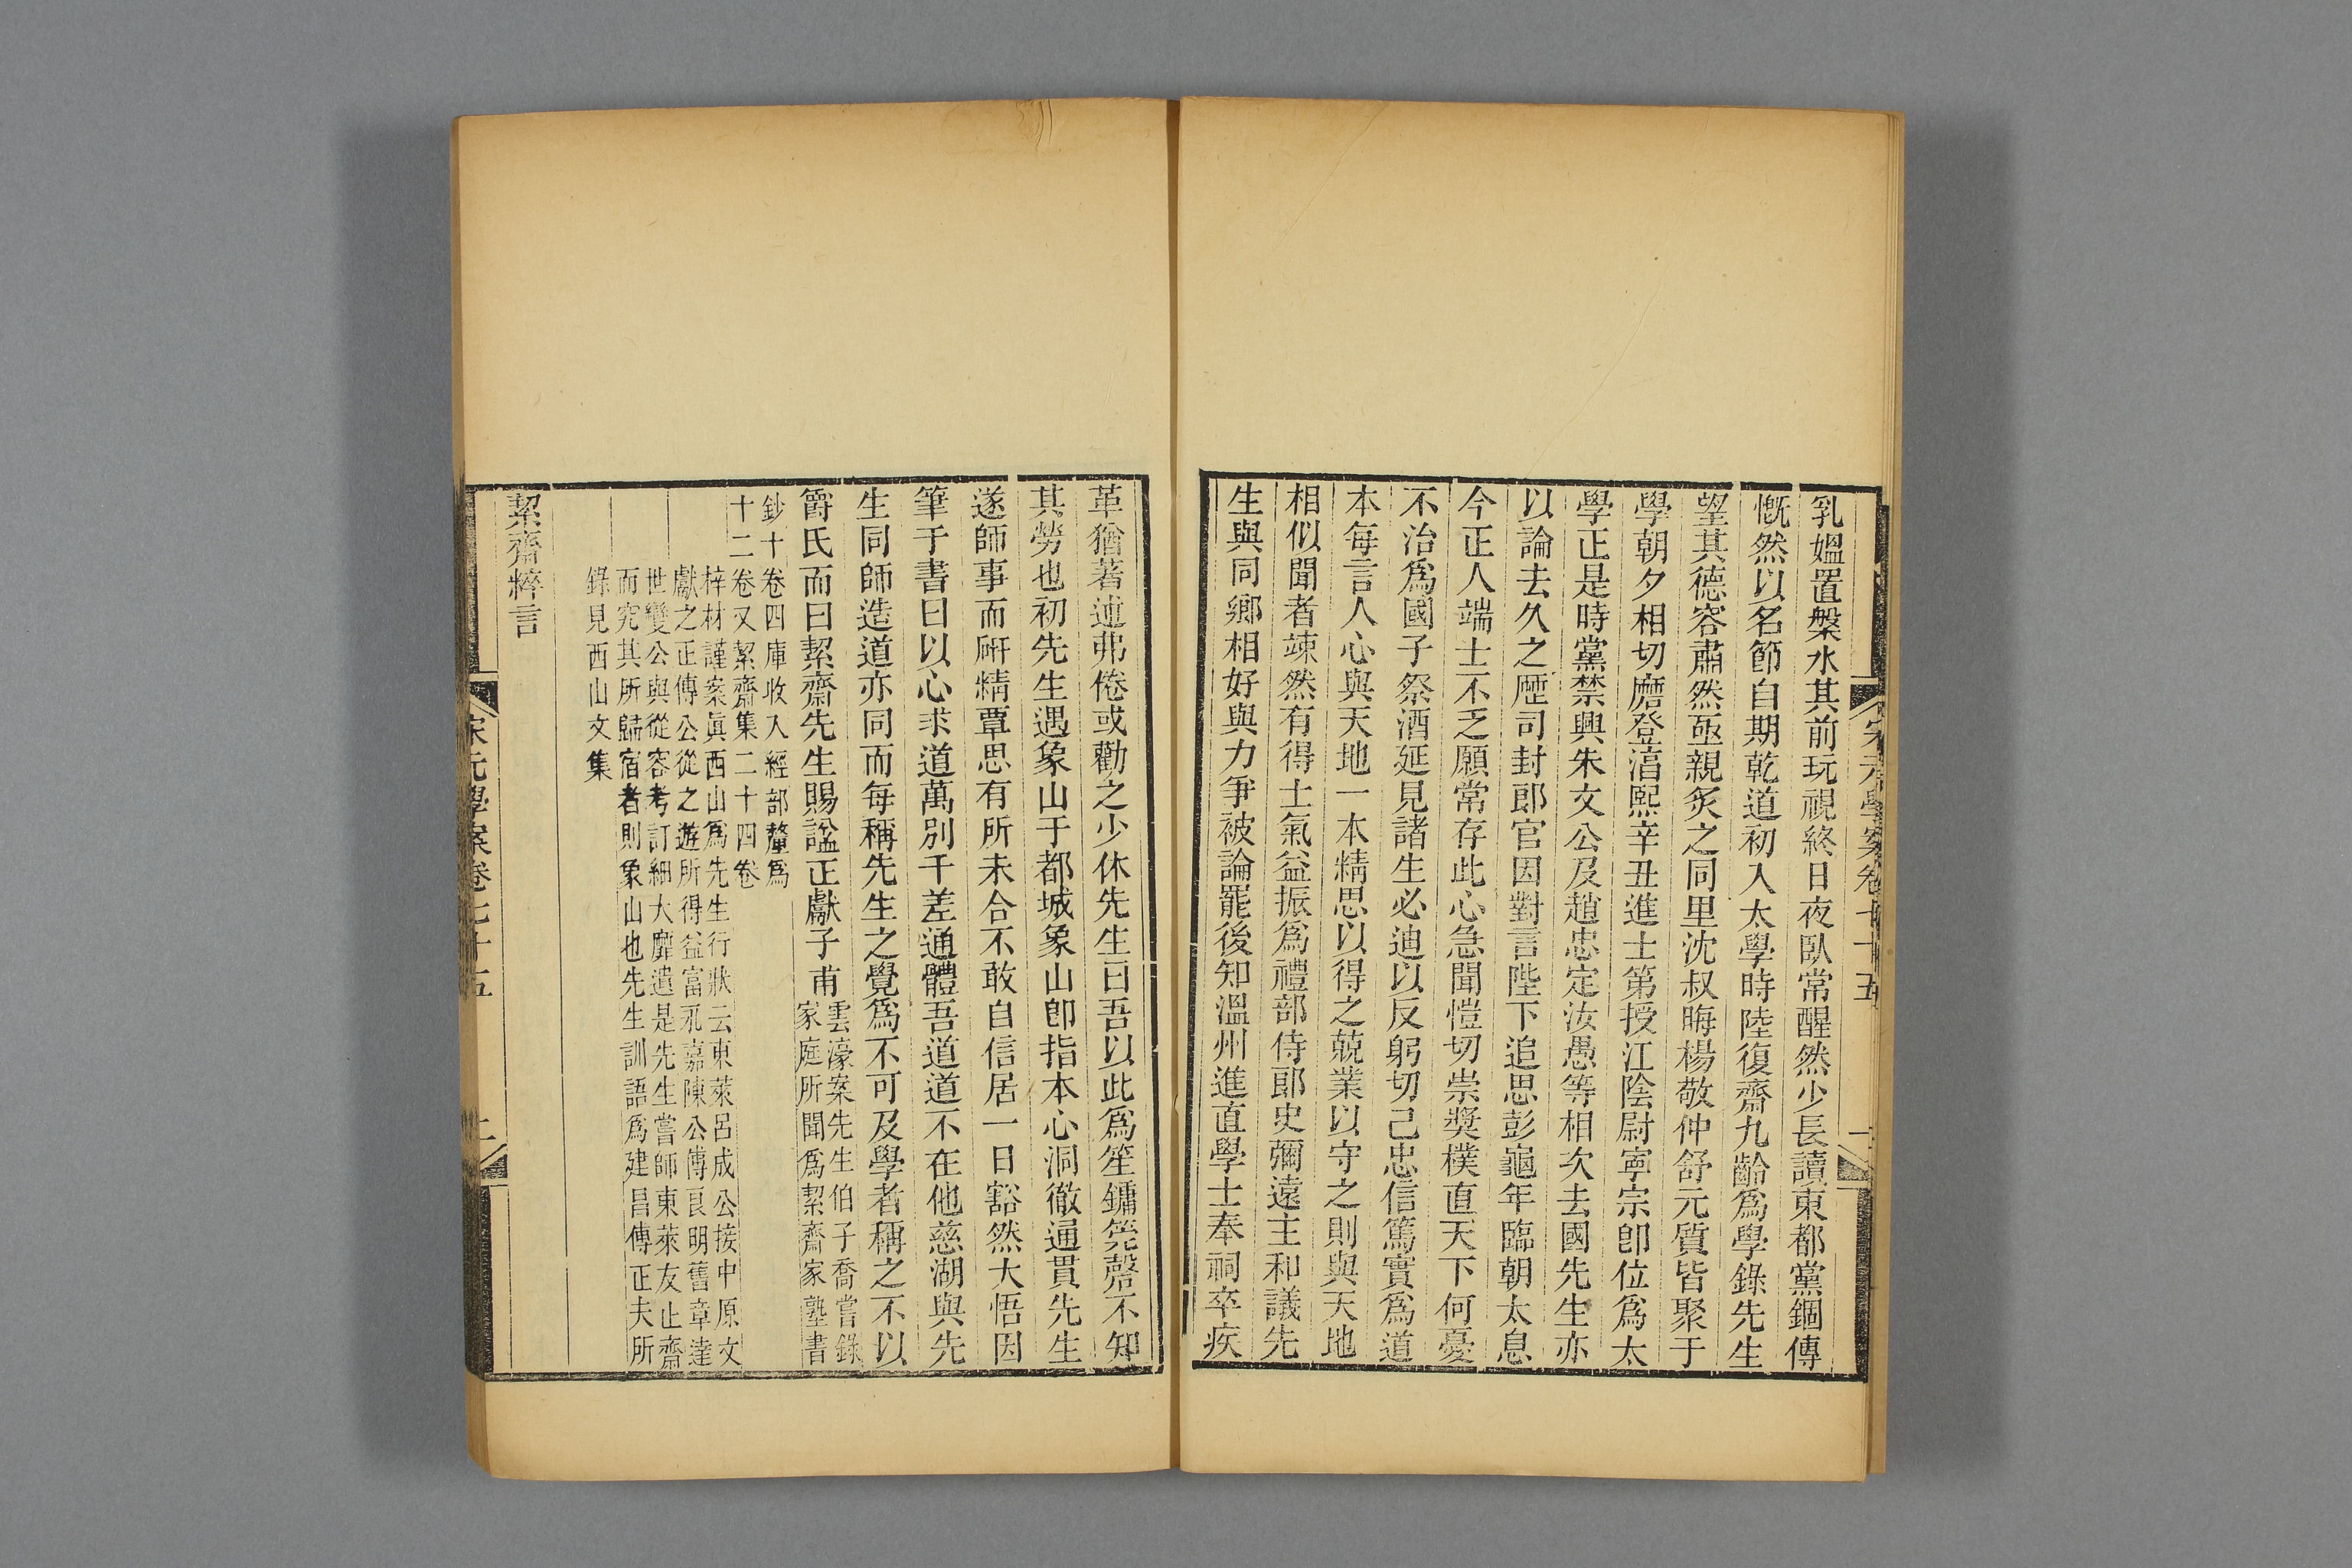 乳媼置槃水其前玩視終日夜臥常醒然少長讀東都黨錮傳
慨然以名節自期乾道初入太學時陸復齋九齡爲學錄先生
望其德容肅然亟親炙之同里沈叔晦楊敬仲舒元質皆聚于
學朝夕相切磨登湻熙辛丑進士第授江陰尉寧宗卽位爲太
學正是時黨禁興朱文公及趙忠定汝愚等相次去國先生亦
以論去久之歷司封郎官因對言陛下追思彭龜年臨朝太息
今正人端士不乏願常存此心急聞愷切崇獎樸直天下何憂
不治爲國子祭酒延見諸生必迪以反躬切己忠信篤實爲道
本每言人心與天地一本精思以得之兢業以守之則與天地
相似聞者竦然有得士氣益振爲禮部侍郎史彌遠主和議先
生與同鄉相好與力爭被論罷後知溫州進直學士奉祠卒疾
革猶著述弗倦或勸之少休先生曰吾以此爲笙鏞筦磬不知
其勞也初先生遇象山于都城象山卽指本心洞徹通貫先生
遂師事而硏精覃思有所未合不敢自信居一日豁然大悟因
筆于書曰以心求道萬別千差通體吾道道不在他慈湖與先
生同師造道亦同而每稱先生之覺爲不可及學者稱之不以
爵氏而曰絜齋先生賜諡正獻子甫
雲濠案先生伯子喬嘗錄
家庭所聞爲絜齋家塾書
鈔十卷四庫收入經部釐爲
十二卷又絜齋集二十四卷
梓材謹案眞西山爲先生行狀云東萊呂成公接中原文
獻之正傳公從之遊所得益富永嘉陳公傅良明舊章達
世變公與從容考訂細大靡遺是先生嘗師東萊友止齋
而究其所歸宿者則象山也先生訓語爲建昌傅正夫所
錄見西山文集
絜齋粹言
宋元學案卷七十五
二